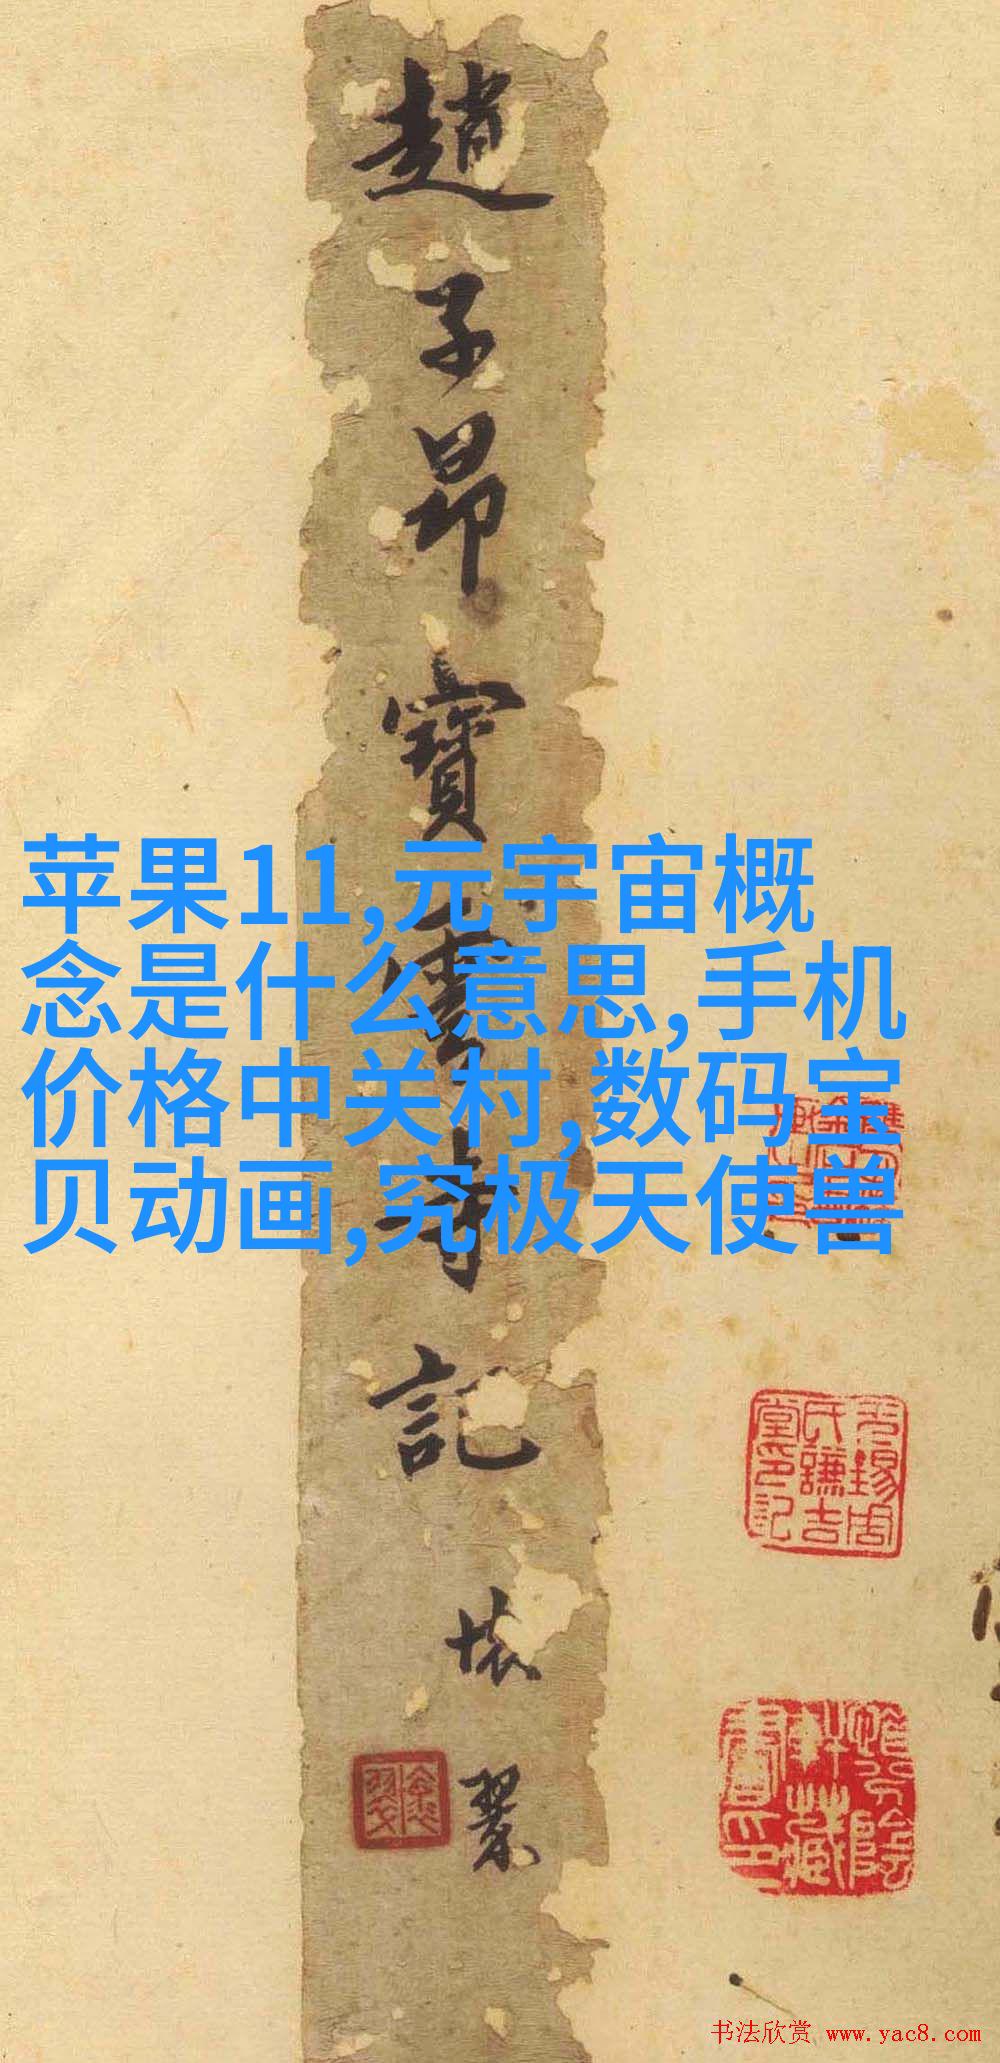 趙子昂寶雲寺記
苹果11,元宇宙概
念是什么意思,手机
价格中关村,数码宝
贝动画,究极天使兽
无锡周
氏謙吉
堂印記
书法欣赏 www.yac8.com